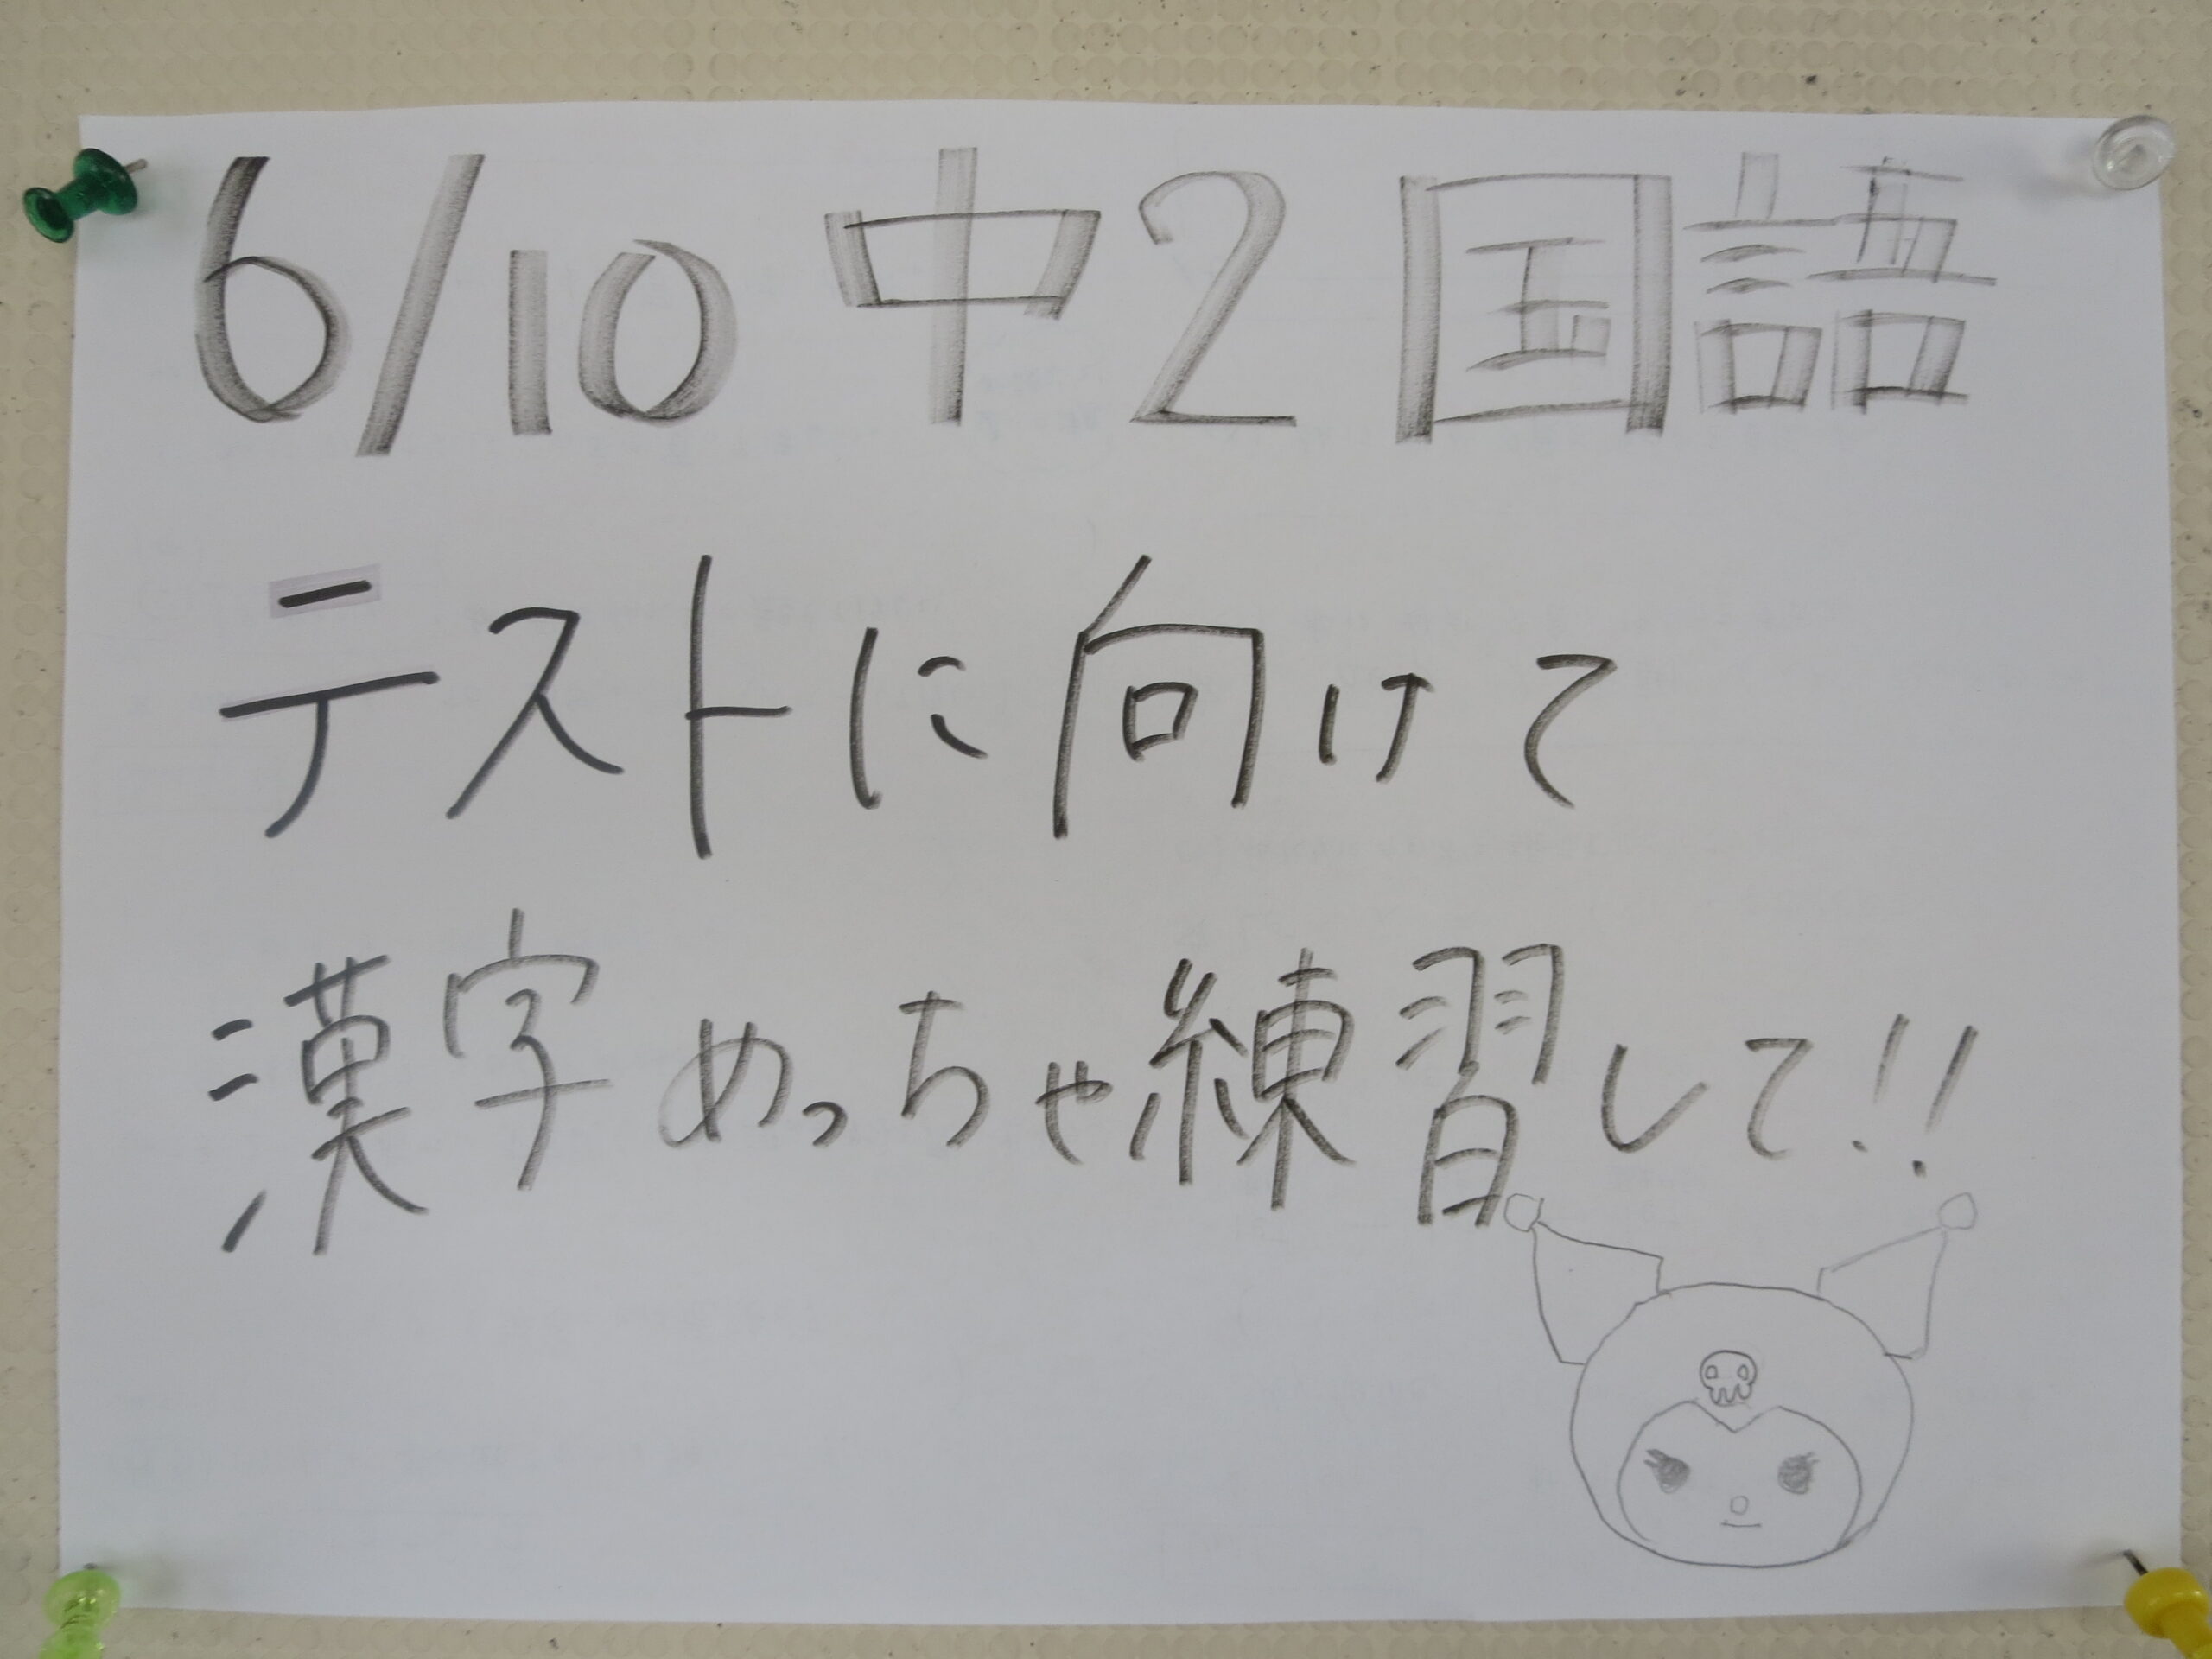 6/10 中2 国語
テストに向けて
漢字めっちゃ練習して!!